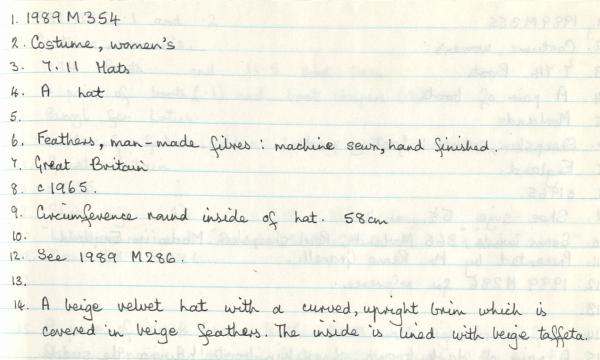 1. 1989 M 354
2. Costume, women's
3. 7.11 Hats
4. A hat
5.
6. Feathers, man-made fibres : machine sewn, hand finished.
7. Great Britain
8. c1965.
9. Circumference round inside of hat. 58cm
10.
12. See 1989 M286.
13.
14. A beige velvet hat with a curved, upright brim which is
covered in beige feathers. The inside is lined with beige taffeta.